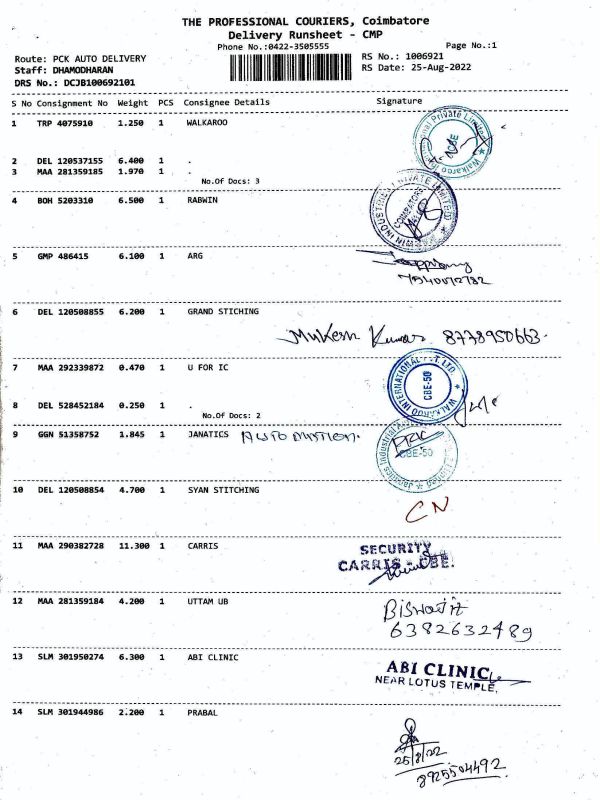 THE PROFESSIONAL COURIERS, Coimbatore
Delivery Runsheet - CMP
Phone No.:0422-3505555
Page No.:1
Route: PCK AUTO DELIVERY
RS No.: 1006921
Staff: DHAMODHARAN
RS Date: 25-Aug-2022
DRS No.: DCJB100692101
S No Consignment No Weight PCS Consignee Details Signature
1 TRP 4075910 1.250 1 WALKAROO
Walkaroo International Private Limited
CBE
2 DEL 120537155 6.400 1 .
3 MAA 281359185 1.970 1 .
No.Of Docs: 3
4 BOH 5203310 6.500 1 RABWIN
RABWIN INDUSTRIES PRIVATE LIMITED
COIMBATORE
5 GMP 486415 6.100 1 ARG
6 DEL 120508855 6.200 1 GRAND STICHING
Mukesh Kumar 8778950663
7 MAA 292339872 0.470 1 U FOR IC
WALKAROO INTERNATIONAL PVT. LTD.
CBE-50
8 DEL 528452184 0.250 1 .
No.Of Docs: 2
9 GGN 51358752 1.845 1 JANATICS AUTOMATION.
Janatics Industrial Limited
CBE-50
10 DEL 120508854 4.700 1 SYAN STITCHING
CN
11 MAA 290382728 11.300 1 CARRIS
SECURITY
CARRIS - CBE.
12 MAA 281359184 4.200 1 UTTAM UB
Biswajit
6382632489
13 SLM 301950274 6.300 1 ABI CLINIC
ABI CLINIC
NEAR LOTUS TEMPLE,
14 SLM 301944986 2.200 1 PRABAL
25/8/22
8925504492